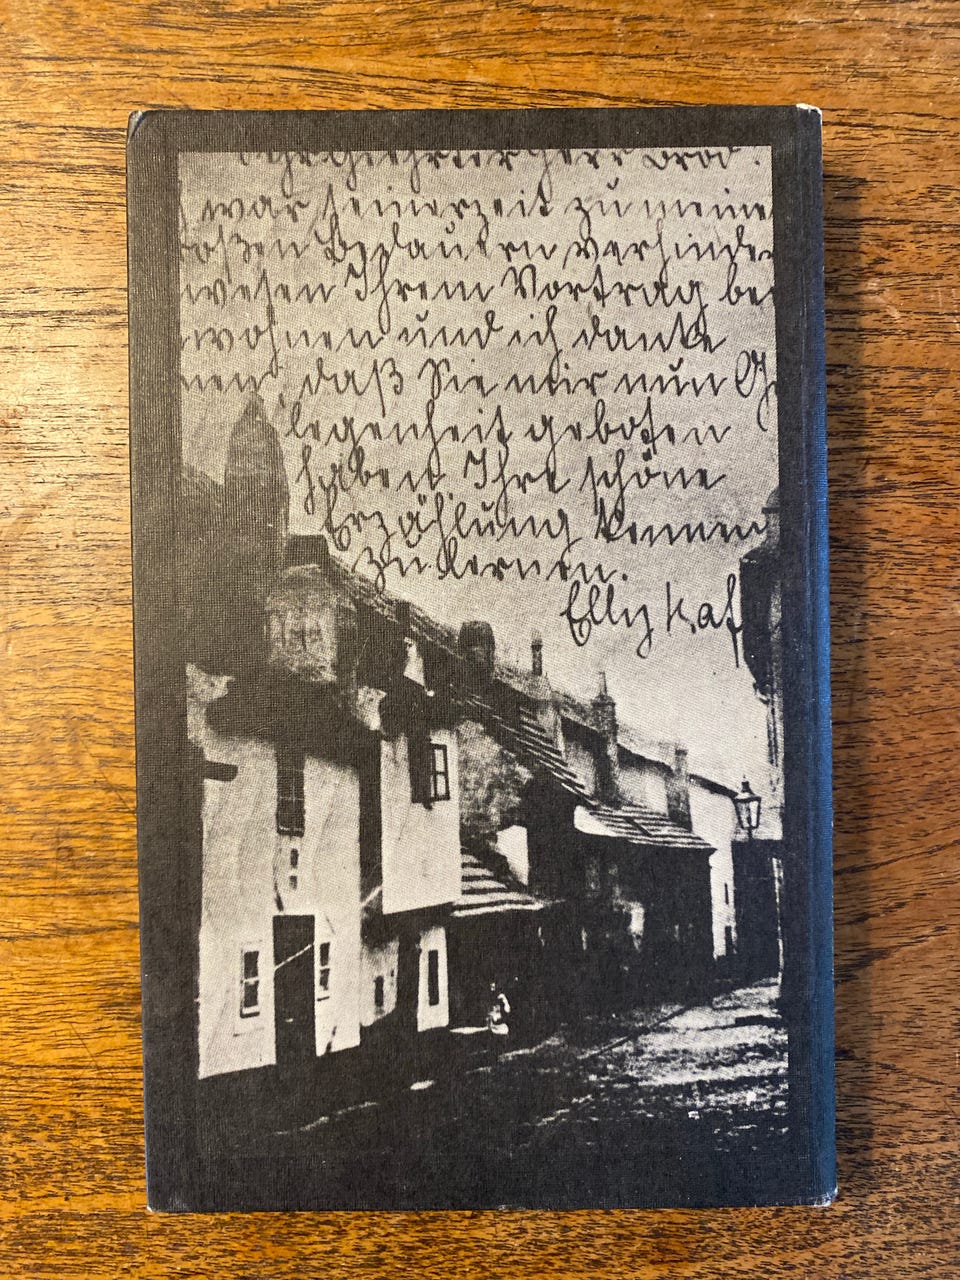 ehrgeehrter Herr Brod.
war seinerzeit zu meine
oßen Bedauern verhinde
wesen Ihrem Vortrag bei
wohnen und ich danke
nen, daß Sie mir nun Ge
legenheit geboten
haben Ihre schöne
Erzählung kennen
zu lernen.
Elly Kaf